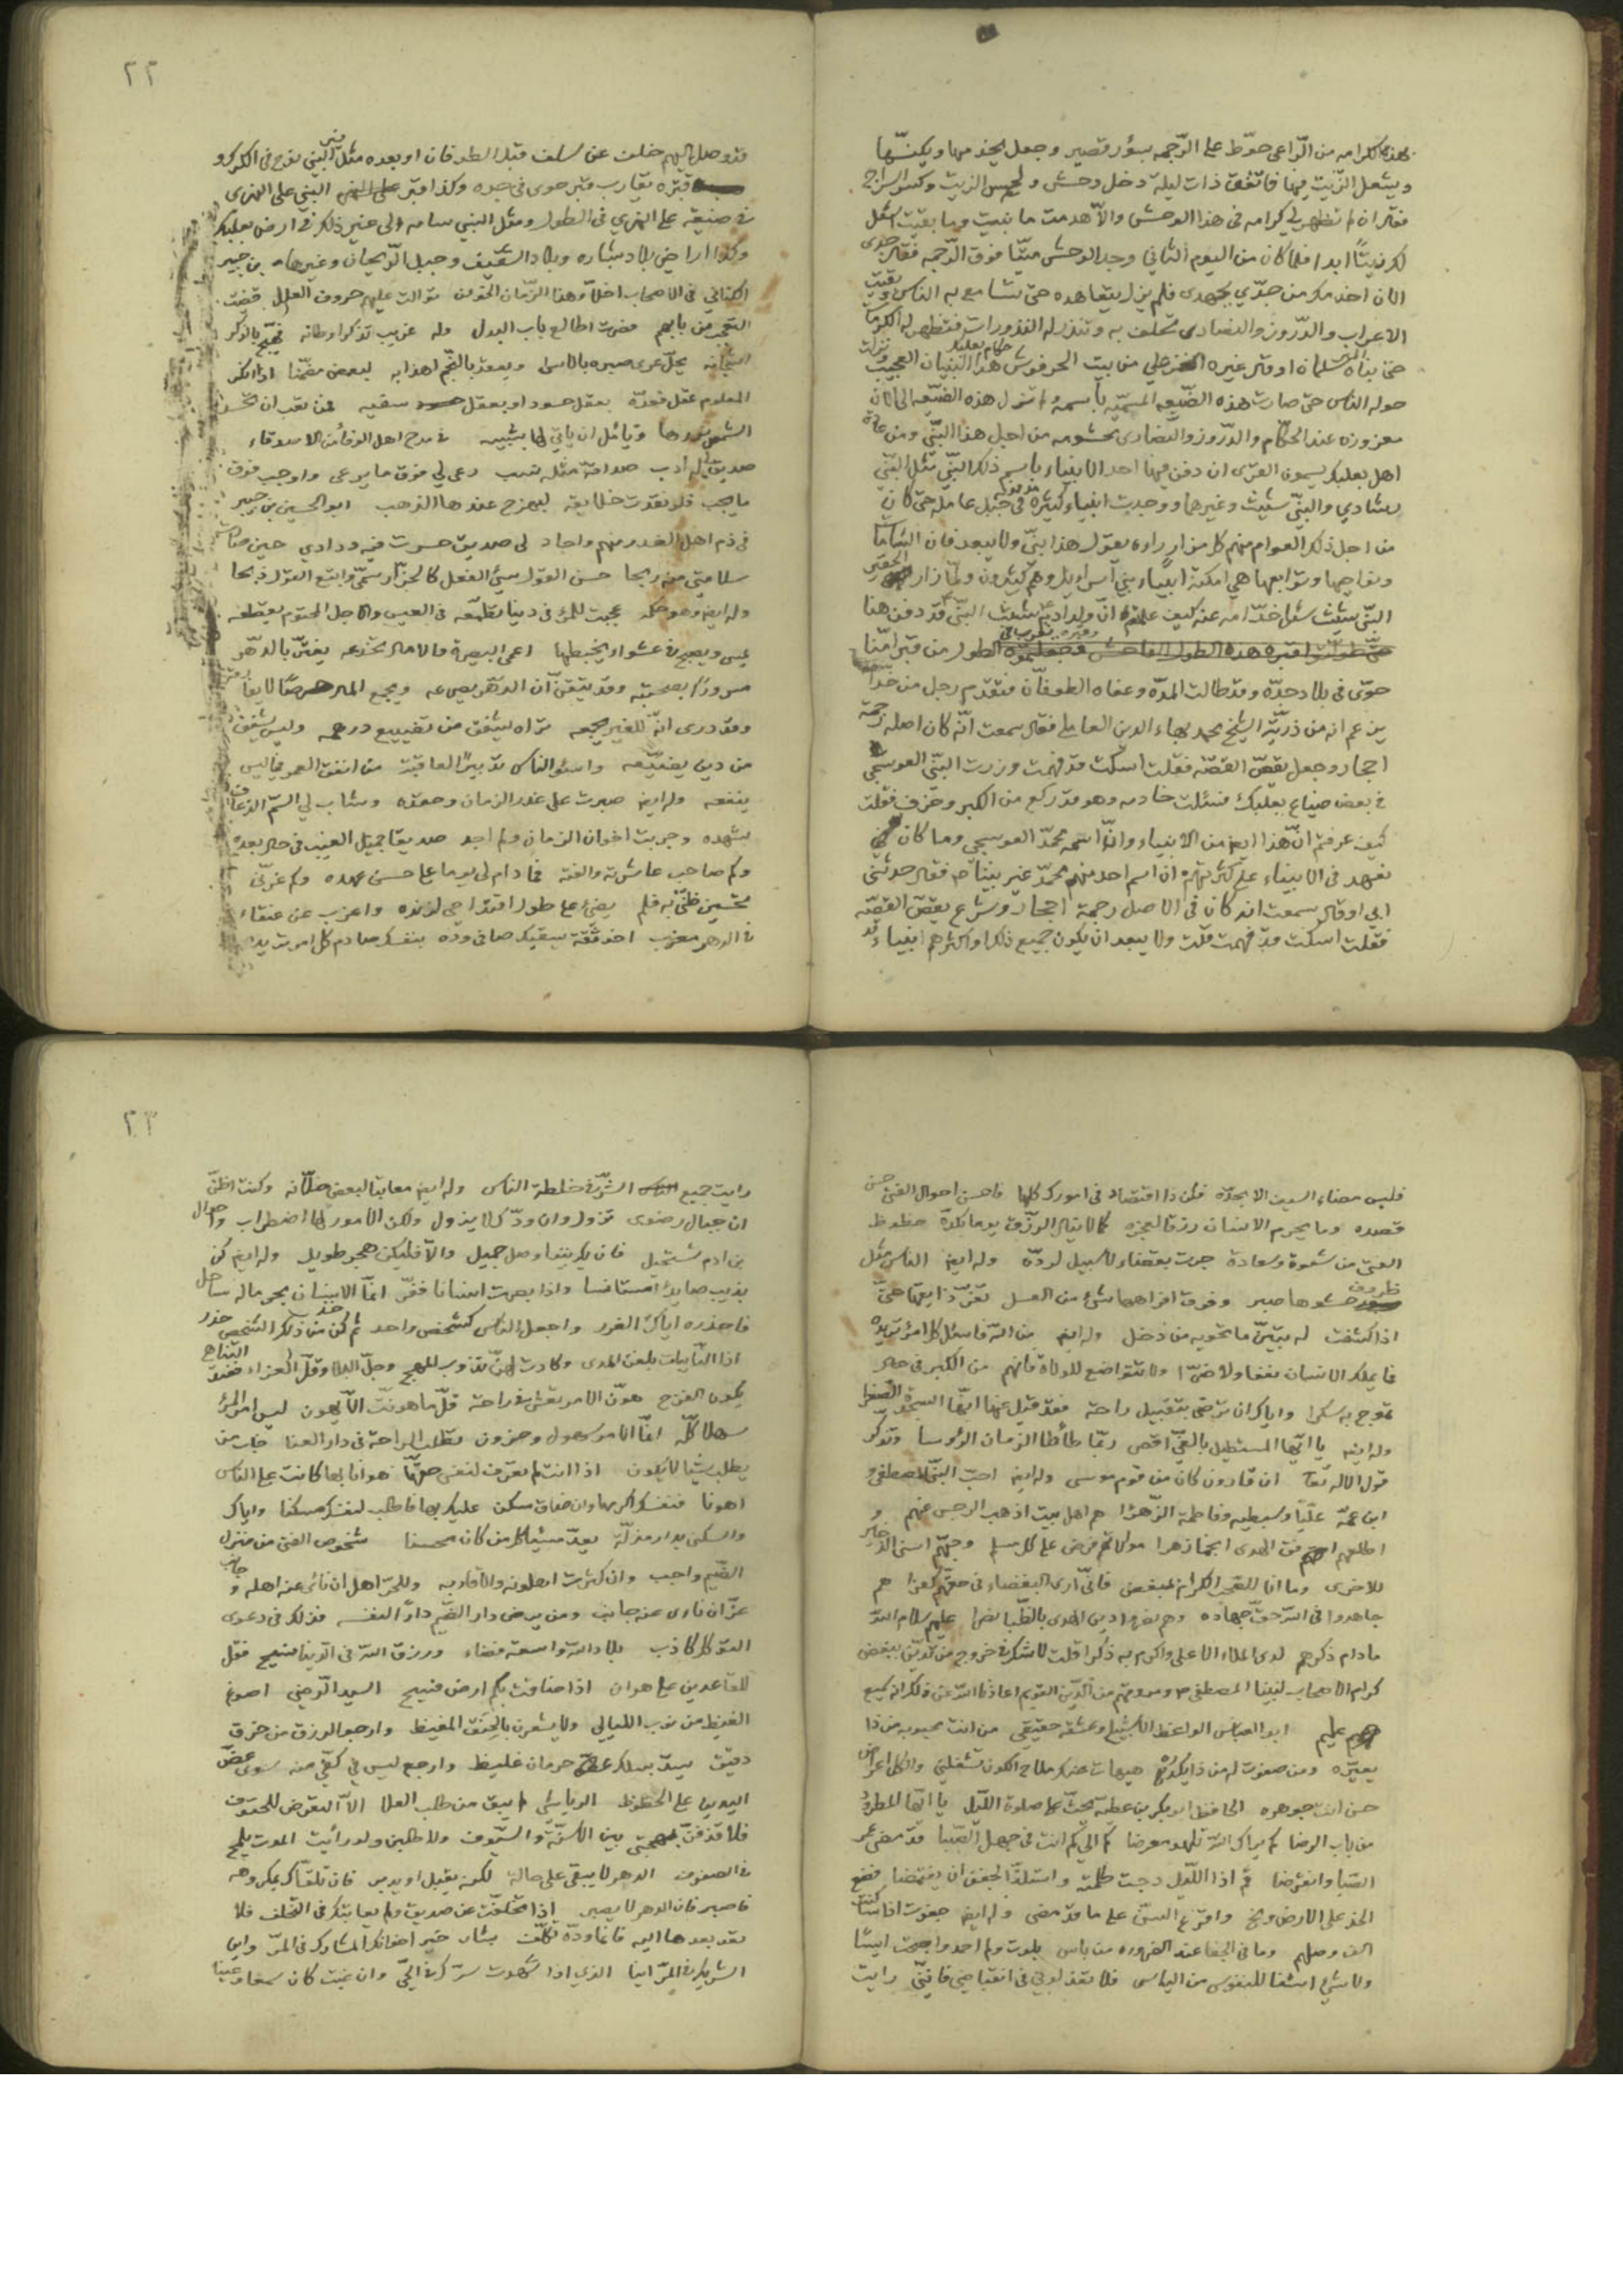 لهذه الكرامه من الراعي حوّط على الرّجمه بسور قصير وجعل يخدمها ويكنسّها
ويشعل الزّيت فيها فاتفق ذات ليلة دخل وحش ولحس الزيت وكسر السراج
فقال ان لم تظهر لي كرامه في هذا الوحش والاّ هدمت ما بنيت وما بقيت اشعل
لك زيتًا ابدا فلما كان من اليوم الثاني وجد الوحش ميتًا فوق الرّجمه فقال جدى
الان اخذ مكر من جدّي بجهدى فلم يزل يتعاهده حتى تسامع به الناس وبقيت
الاعراب والدّروز والنصارى تحلف به وتنذر له النذورات فتظهر له الكرامات
حتى بناه سلمان او قال غيره من بيت الحرفوش حكام بعلبك هذا البنيان العجيب ونزلت
حوله الناس حتى صارت هذه الضّيعه المسميّه بأسمه ولم تزل هذه الضيّعه الى الان
معزوزه عند الحكّام والدّروز والنّصارى محشومه من اجل هذا النبّي ومن عادة
اهل بعلبك يسمون القرى ان دفن فيها احد الانبياء باسم ذلك النبّي مثل النبّي
رشادي والنبّي شيث وغيرهما ووجدت انبياء كثيرة في جبل عامله حتى كان
من اجل ذلك العوام منهم كل مزار راوه يقول هذا نبيّ ولا يبعد فان الشامات
ونواحيها وتوابعها هي امكنة انبياء بني اسراييل وهم كثيرون ولمّا زار الحقير
النبّي شيث سئل خدّامه عنه كيف علمتم انّ ولد ادم شيث النبّي قد دفن هنا
حوّى في بلاد جدّه وقد طالت المدّه وعفاه الطوفان فتقدم رجل من خدّامه
يزعم انه من ذريّة الشيخ محمد بهاء الدين العاملي فقال سمعت انّه كان اصله رجمة
احجار وجعل يقصّ القصّه فقلت اسكت قد فهمت وزرت النبّي العوسجي
في بعض ضياع بعلبك فسئلت خادمه وهو قد ركع من الكبر وخرّف فقلت
كيف عرفتم انّ هذا ايضا من الانبياء وانّ اسمه محمدّ العوسجي وما كان
نعهد في الانبياء على كثرتهم ان اسم احد منهم محمدّ غير نبيّنا فقال حدثني
ابي او قال سمعت انه كان في الاصل رجمة احجار وشرع يقصّ القصّه
فقلت اسكت قد فهمت قلت ولا يبعد ان يكون جميع ذلك او اكثرهم انبياء وقد
٢٢
قد وصل اليهم خلف عن سلف قبل الطوفان او بعده مثل قبر النبّي نوح في الكرك و
قبره يقارب قبر حوى في جده وكذا قبر النبّي على النهرى
في ضيعة على النهري في الطول ومثل النبي سام الى غير ذلك في ارض بعلبك
وكذا اراضي بلاد بشاره وبلاد الشقيف وجبل الرّيحان وغيرها بن جبير
الكناني في الاصحاب اخلاّء هذا الزّمان الخون توالت عليهم حروف العلل قضيت
التعجّب من بابهم فصرت اطالع باب البدل وله غريب تذكر اوطانه فهيّج بالذكر
اشجانه يحلّ عرى صبره بالاسى ويعقد بالنّجم اهدابه لبعض مضمّنا اذا انكر
المعلوم عقل فعدّه بعقل حسود او بعقل سفيه فمن تعب ان يحسد
الشمس نورها ويأمل ان ياتي لها بشبيه في مدح اهل الوفاء من الاصدقاء
صديق له ادب صداقة مثله نسب رعى لي فوق ما يرعى واوجب فوق
ما يجب فلو نقدت خلايقه لبهرج عندها الذهب ابو الحسين بن جبير
في ذم اهل الغدر منهم واجاد لي صديق خسرت فيه ودادي حين صارت
سلامتي منه ربحا حسن القول سيئ الفعل كالجزّار سمّى واتبع القول ذبحا
وله ايضا وهو حكمه عجبت للمرئ في دنيا تطمّعه في العيش والاجل المحتوم يقطعه
يمسى ويصبح في عشواء يخبطها اعمى البصيرة والامال تخدعه يغترّ بالدهر
مسرورا بصحبته وقد تيقنّ انّ الدّهر يصرعه ويجمع المال حرصًا لا يفارقه
وقد درى انّه للغير يجمعه تراه يشفق من تضييع درهمه وليس يشفق
من دين يضيّعه واسوأ الناس تدبيرًا لعاقبة من انفق العمر فيما ليس
ينفعه وله ايضا صبرت على غدر الزمان وحقده وشاب لي السّم الزعاف
بشهده وجربت اخوان الزمان فلم اجد صديقا جميل الغيب في حال بعده
وكم صاحب عاشرته والفته فما دام لي يوما على حسن عهده وكم غرّني
تحسين ظنّي به فلم يضئ على طول اقتداحي لزنده واغرب من عنقاء
في الدهر مغرب اخو ثقة يسقيك صافي ودّه بنفسك صادم كل امر تريده
فليس مضاء السيف الا بحدّه فكن ذا اقتصاد في امورك كلها فاحسن احوال الفتى حسن
قصده وما يحرم الانسان رزقا لعجزه كما لا ينال الرزّق يوما بكدّه حظوظ
الفتى من شقوة وسعادة جرت بقضاء لا سبيل لردّه وله ايضا الناس مثل
ظروف حشوها صبر وفوق افواهها شئ من العسل تغرّ ذايقها حتى
اذا كشفت له تبيّن ما تحويه من دخل وله ايضا من الله فاسئل كل امر تريده
فما يملك الانسان نفعا ولا ضرّا ولا تتواضع للولاة فانهم من الكبر في حال
تموج به سكرا واياك ان ترضى بتقبيل راحة فقد قيل عنها انها السجدة الصغرا
وله ايضا يا ايّها المستطيل بالغيّ اقصر ربّما طأطأ الزمان الرؤسا وتذكّر
قول الاله تعا ان قارون كان من قوم موسى وله ايضا احبّ النبّي المصطفى و
ابن عمّه عليّا وسبطيه وفاطمة الزّهرا هم اهل بيت اذهب الرجس عنهم و
اطلعهم افق الهدى انجما زهرا موالاتهم فرض على كل مسلم وحبّهم اسنى الذخاير
للاخرى وما انا للصّحب الكرام بمبغض فانّي ارى البغضاء في حقّهم كفرا هم
جاهدوا في الله حقّ جهاده وهم نصروا دين الهدى بالظّبا نصرا عليهم سلام الله
ما دام ذكرهم لدى الملاء الاعلى واكرم به ذكرا قلت لا شك في خروج من تديّن ببغض
كرام الاصحاب لنبينا المصطفى ص ومروقهم من الدّين القويم اعاذنا الله عن ذلك
عليهم ابو العباس الواعظ الاشبيلي وعشقه حقيقي من انت محبوبه من ذا
يعيّره ومن صفوت له من ذا يكدّره هيهات عنك ملاح الكون تشغلني والكل اعراض
حسن انت جوهره الحافظ ابو بكر بن عطيه يحثّ على صلوة اللّيل يا ايّها المطرود
من باب الرضا كم يراك الله تلهو معرضا كم الى كم انت في جهل الصّبا قد مضى عمر
الصبّا وانقرضا قم اذا اللّيل دجت ظلمته واستلذّ الجفن ان يغتمضا فضع
الخدّ على الارض ونح واقرع السنّ على ما قد مضى وله ايضا جفوت اناسا كنت
الف وصلهم وما في الجفا عند الضروره من باس بلوت ولم احمد واصبحت ايسا
ولا شئ اشفى للنفوس من الياس فلا تعذلوني في انقباضي فانّني رايت
٢٣
رايت جميع الشرّ في خلطة الناس وله ايضا معاتبا لبعض خلّانه وكنت اظنّ
ان جبال رضوى تزول وان ودّك لا يزول ولكن الامور لها اضطراب واحوال
بن ادم تستحيل فان يك بيننا وصل جميل والاّ فليكن هجر طويل وله ايضا كن
بذيب صايد مستانسا واذا بصرت انسانا ففرّ انمّا الانسان بحر ماله ساحل
فاحذره ايّاك الغرر واجعل الناس كشخص واحد ثم كن من ذلك الشخص حذر
اذا النّايبات بلغن المدى وكادت لهنّ تذوب المهج وحلّ البلا وقلّ العزاء فعند التناهي
يكون الفرج هوّن الامر تعش في راحة قلّ ما هونت الاّ يهون ليس امر المرء
سهلا كلّه انمّا الامر سهول وحزون تطلب الراحة في دار العنا خاب من
يطلب شيا لا يكون اذا انت لم تعرف لنفسك حقّها هوانا بها كانت على الناس
اهونا فنفسك اكرمها وان ضاق مسكن عليك بها فاطلب لنفسك مسكنا واياك
والسكنى بدار مذلّة يعدّ مسيئا كل من كان محسنا شخوص الفتى من منزل
الضيم واجب وان كثرت اهلونه والاقارب وللحرّ اهل ان نائى عنه اهله وجانب
عزّ ان نائ عنه جانب ومن يرض دار الضيم دارًا لنفسه فذلك في دعوى
التوكل كاذب بلاد الله واسعة فضاء ورزق الله في الدّنيا فسيح فقل
للقاعدين على هوان اذا ضاقت بكم ارض فسيح السيد الرّضي اصوغ
الغيظ من نوب الليالي ولا يشعرن بالحنق المغيظ وارجو الرزق من خرق
دقيق يسدّ بسلك حرمان غليظ وارجع ليس في كفّي منه سوى عضّ
اليدين على الحظوظ الرياشي لم يبق من طلب العلا الاّ التعرّض للحتوف
فلاقذفنّ بمهجتي بين الاسنّة والسّيوف ولاطلبن ولو رأيت الموت يلمع
في الصفوف الدهر لا يبقى على حالة لكنه يقبل او يدبر فان تلقّاك بمكروهه
فاصبر فان الدهر لا يصبر اذا تخلّفت عن صديق ولم يعاتبك في التخلف فلا
تعد بعدها اليه فانمّا ودّه تكلّف بشار خير اخوانك المشارك في المرّ واين
الشريك في المرّ اينا الذي اذا شهدت سرّك في الحيّ وان غبت كان سمعا وعينا